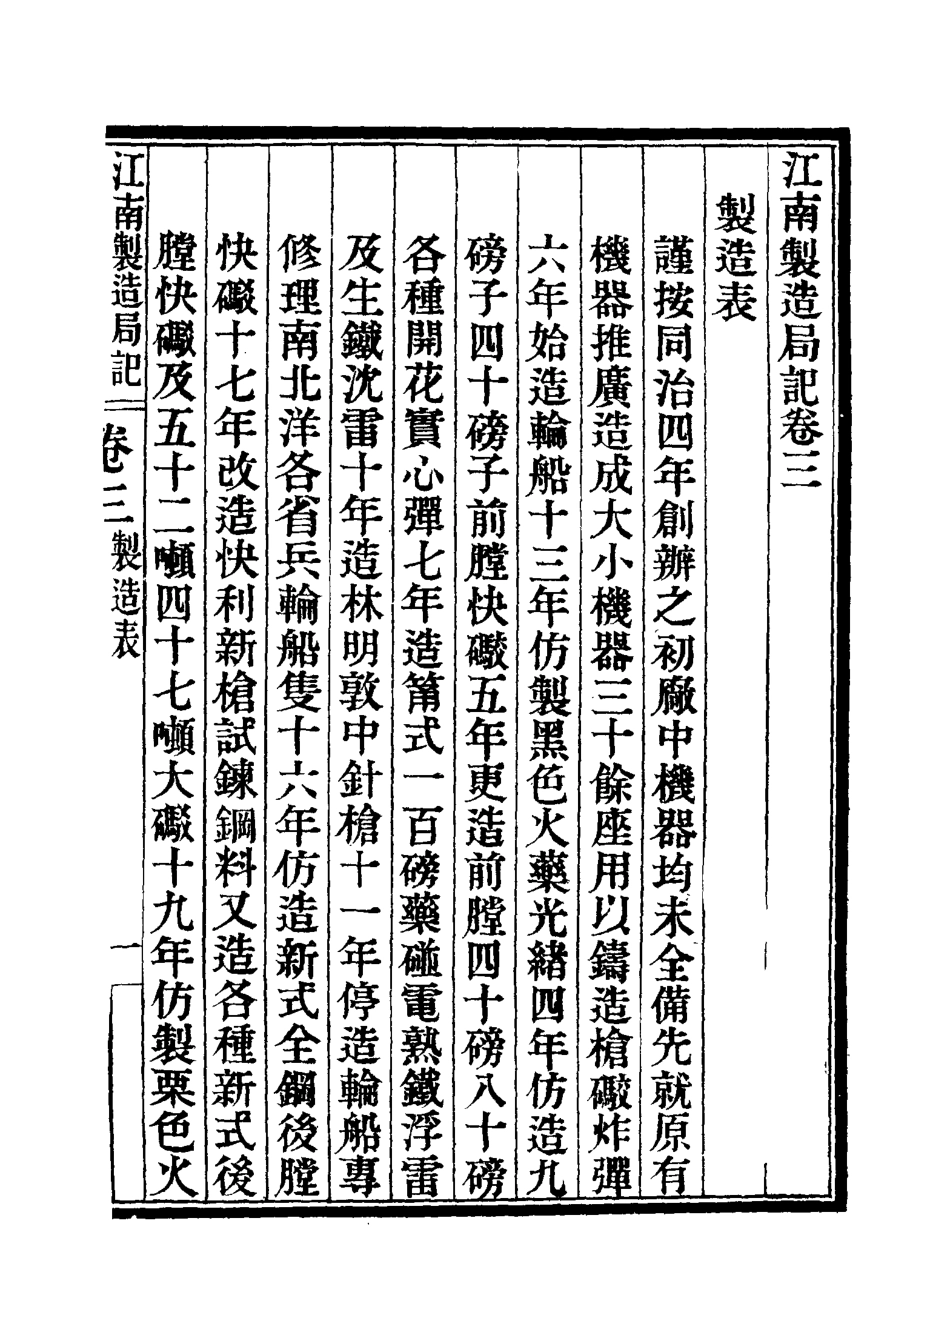 江南製造局記卷三
製造表
謹按同治四年創辦之初廠中機器均未全備先就原有
機器推廣造成大小機器三十餘座用以鑄造槍礮炸彈
六年始造輪船十三年仿製黑色火藥光緒四年仿造九
磅子四十磅子前膛快礮五年更造前膛四十磅八十磅
各種開花實心彈七年造筩式一百磅藥碰電熟鐵浮雷
及生鐵沈雷十年造林明敦中針槍十一年停造輪船專
修理南北洋各省兵輪船隻十六年仿造新式全鋼後膛
快礮十七年改造快利新槍試鍊鋼料又造各種新式後
膛快礮及五十二噸四十七噸大礮十九年仿製栗色火
江南製造局記 卷三 製造表 一